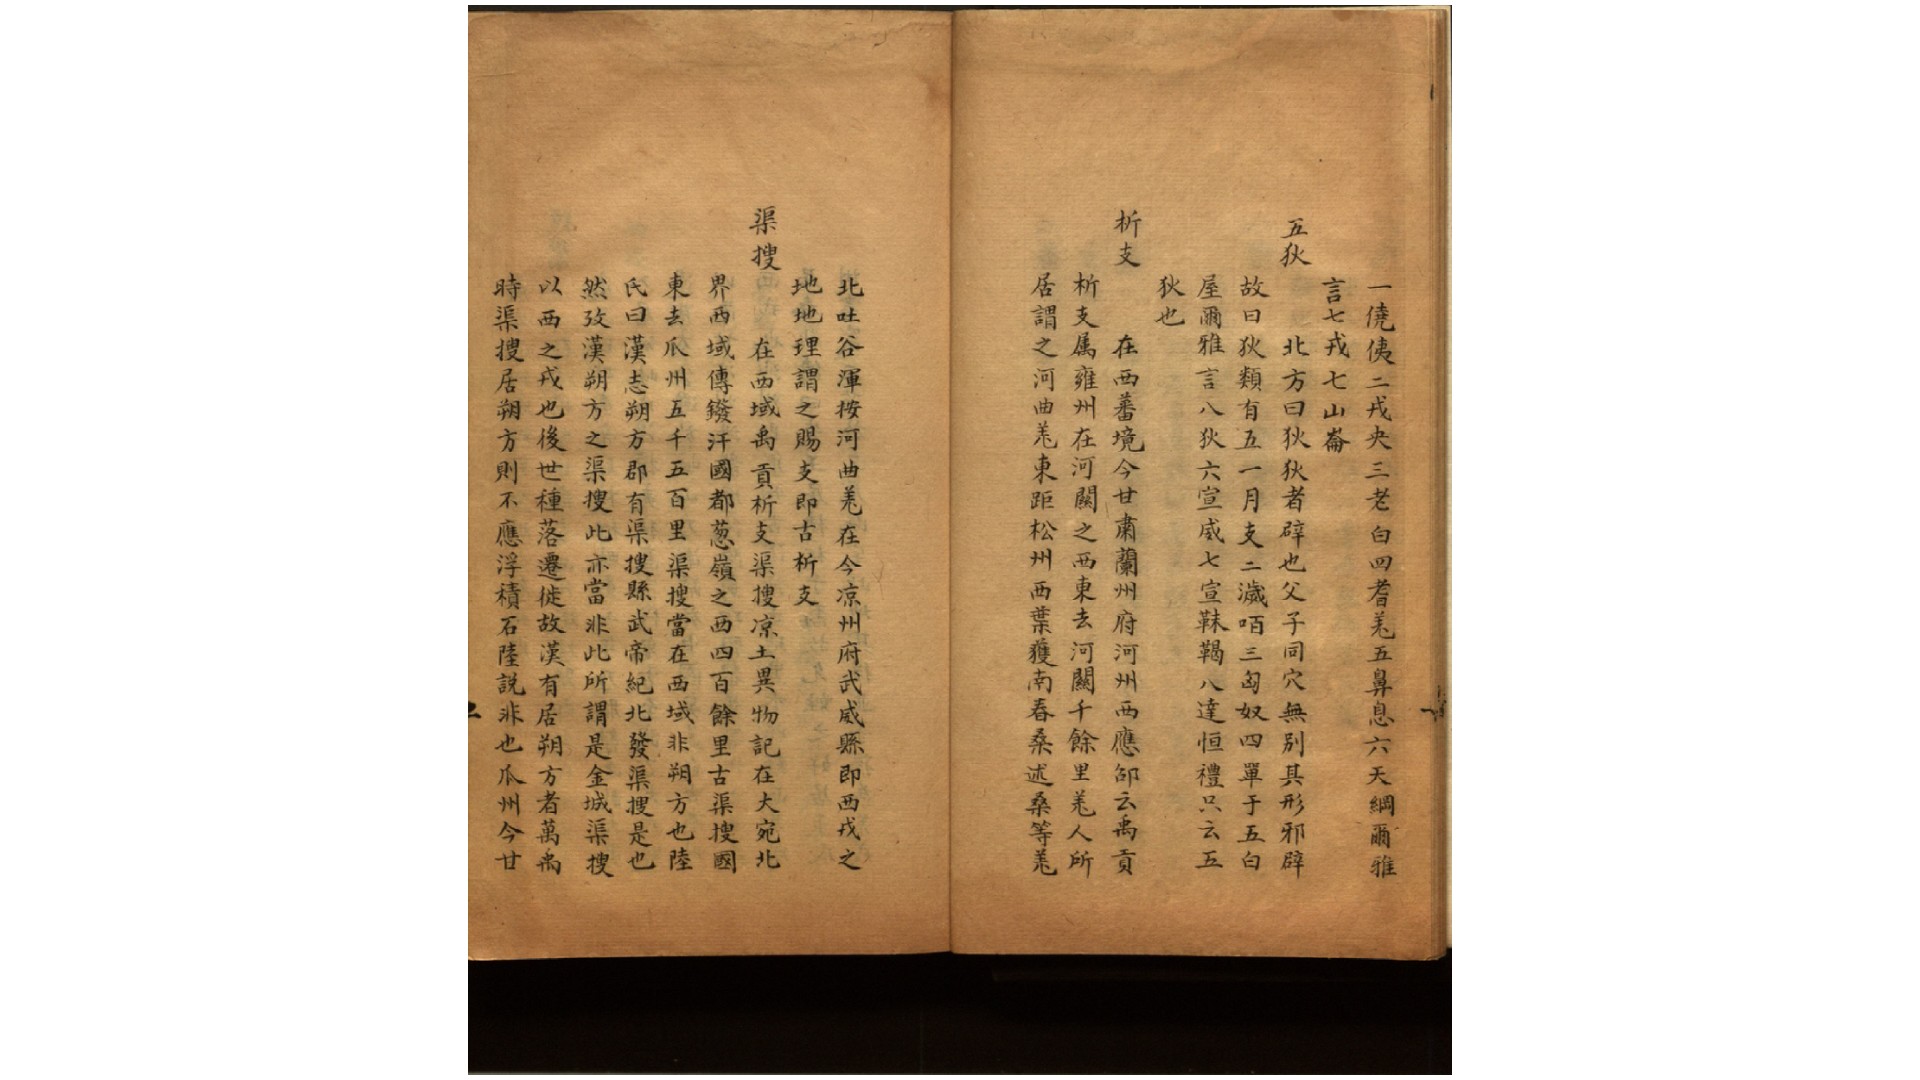 一僥侇二戎央三老白四耆羌五鼻息六天綱爾雅
言七戎七山崙
五狄
北方曰狄狄者辟也父子同穴無別其形邪辟
故曰狄類有五一月支二濊咟三匈奴四單于五白
屋爾雅言八狄六宣威七宣靺鞨八達恒禮只云五
狄也
析支
在西蕃境今甘肅蘭州府河州西應邵云禹貢
析支属雍州在河關之西東去河關千餘里羌人所
居謂之河曲羌東距松州西葉獲南春桑述桑等羌
北吐谷渾按河曲羌在今凉州府武威縣即西戎之
地地理謂之賜支即古析支
渠搜
在西域禹貢析支渠搜凉土異物記在大宛北
界西域傳鏺汗國都葱嶺之西四百餘里古渠搜國
東去爪州五千五百里渠搜當在西域非朔方也陸
氏曰漢志朔方郡有渠搜縣武帝紀北發渠搜是也
然攷漢朔方之渠搜此亦當非此所謂是金城渠搜
以西之戎也後世種落遷徙故漢有居朔方者萬禹
時渠搜居朔方則不應浮積石陸説非也爪州今甘